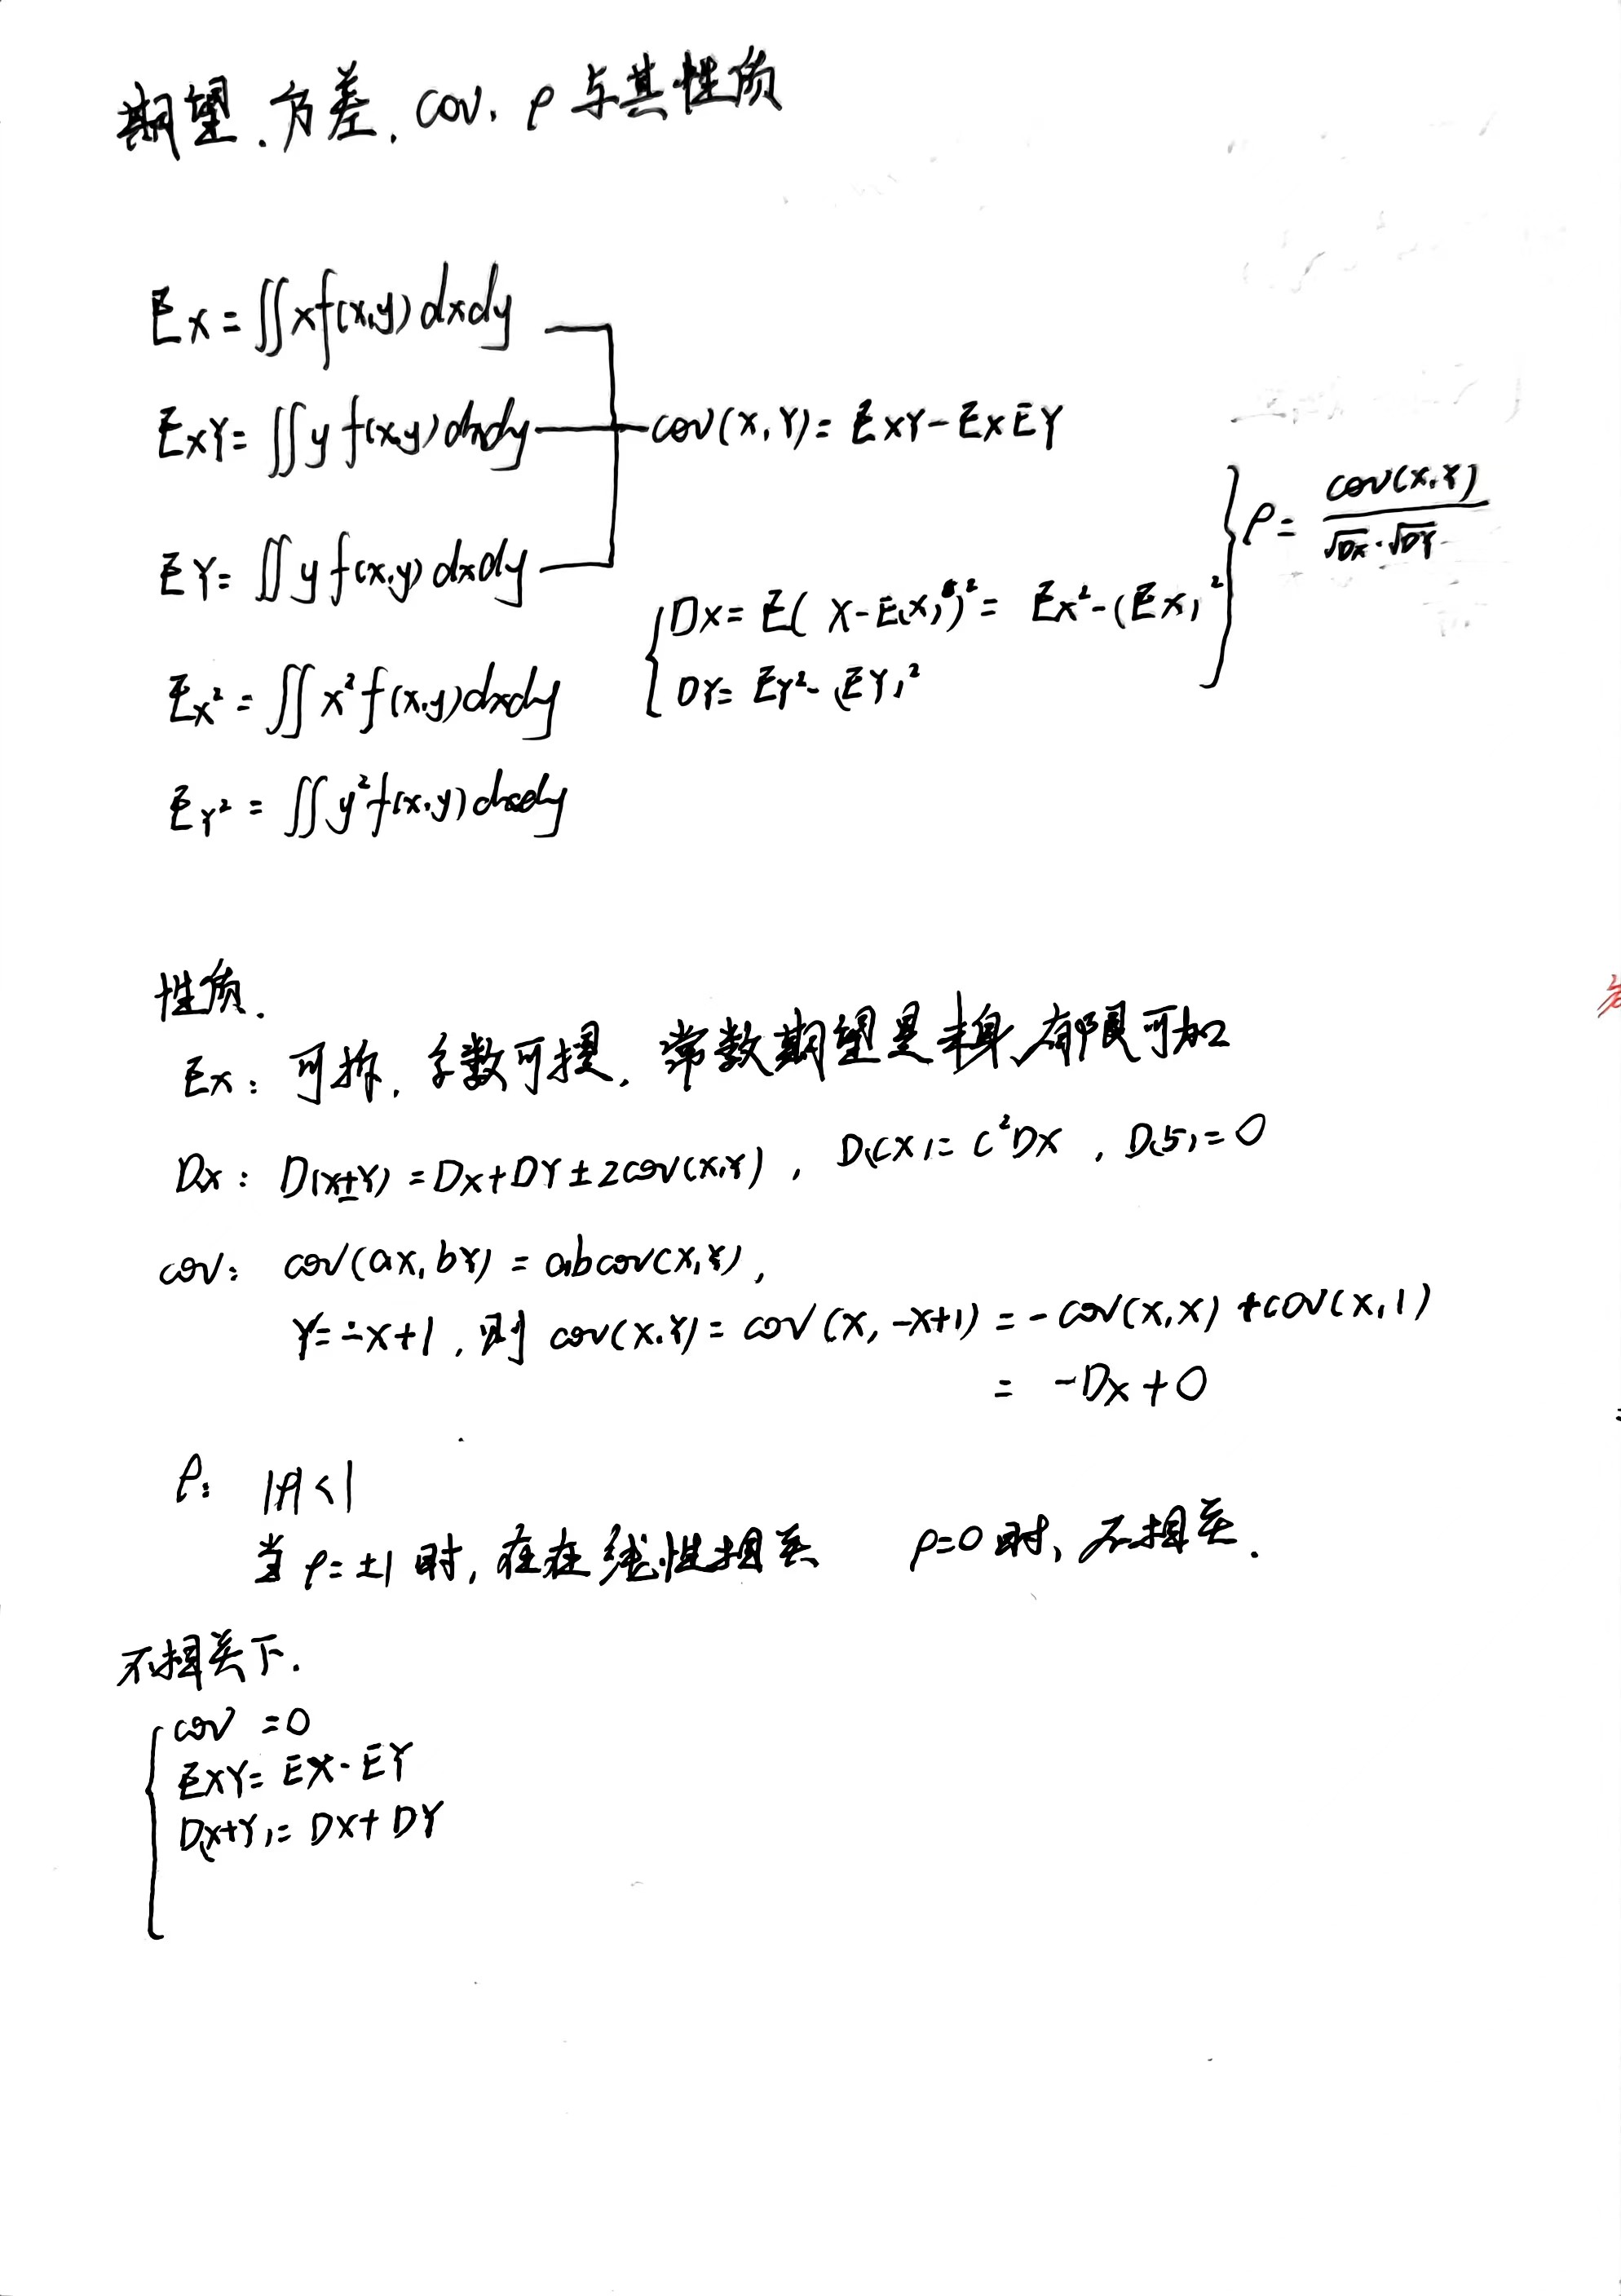 期望、方差、cov、ρ与其性质
Ex = ∬xf(x,y)dxdy
ExY = ∬y f(x,y)dxdy — cov(x,Y) = ExY - ExEY
ρ = cov(x,Y) / √Dx·√DY
EY = ∬y f(x,y)dxdy
Dx = E(x-E(x))² = Ex²-(Ex)²
DY = EY²-(EY)²
Ex² = ∬x²f(x,y)dxdy
EY² = ∬y²f(x,y)dxdy
性质.
Ex: 可拆, 数可提, 常数期望是本身, 有限可加
Dx: D(x±Y) = Dx+DY±2cov(x,Y), D(Cx) = C²Dx, D(5) = 0
cov: cov(ax, bY) = abcov(x,Y),
Y = -x+1, 则 cov(x,Y) = cov(x, -x+1) = -cov(x,x) + cov(x,1)
= -Dx + 0
ρ: |ρ| < 1
当 ρ = ±1 时, 在在线性相关 ρ=0 时, 不相关.
不相关下.
cov = 0
EXY = EX·EY
D(x+Y) = DX + DY